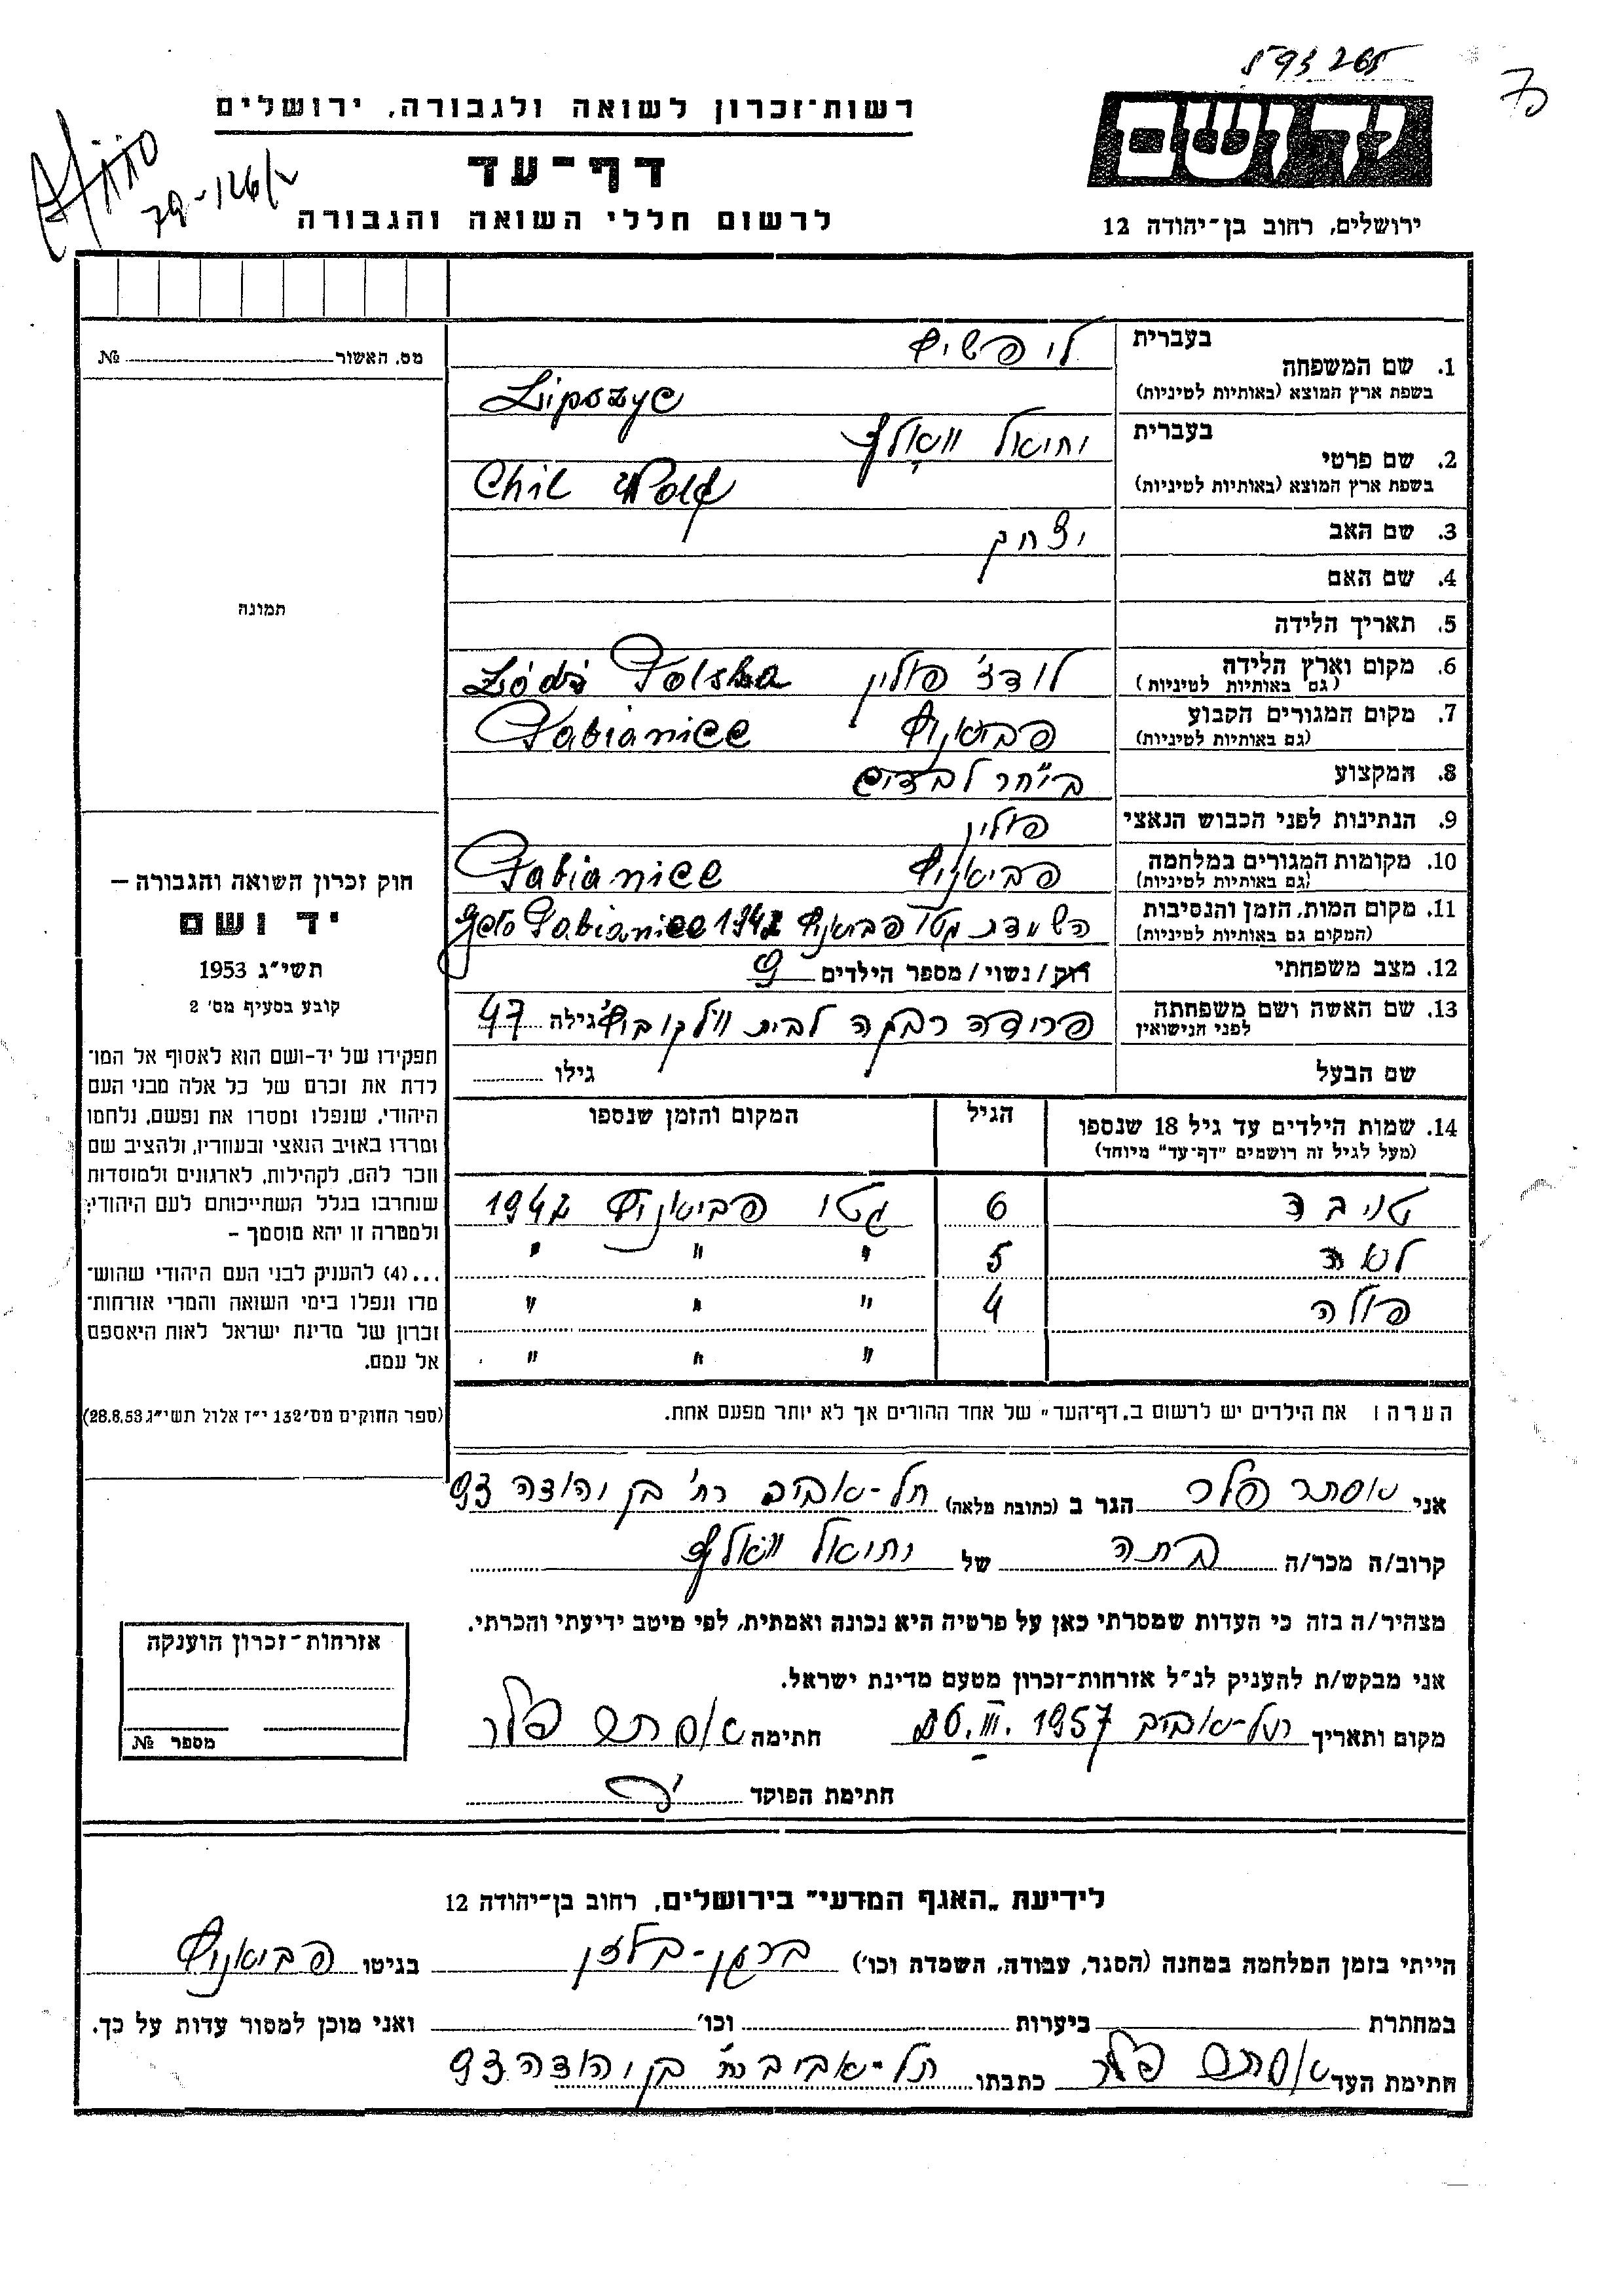 593265
רשות־זכרון לשואה ולגבורה, ירושלים
דף־עד
לרשום חללי השואה והגבורה
יד ושם
ירושלים, רחוב בן־יהודה 12
מס. האשור №
תמונה
1. שם המשפחה
בעברית ליפשיץ
בשפת ארץ המוצא (באותיות לטיניות) Lipszyc
2. שם פרטי
בעברית יחיאל וואָלף
בשפת ארץ המוצא (באותיות לטיניות) Chil Wolf
3. שם האב יצחק
4. שם האם
5. תאריך הלידה
6. מקום וארץ הלידה לודז' פולין Łódź Polska
(גם באותיות לטיניות)
7. מקום המגורים הקבוע פביאניץ Pabianice
(גם באותיות לטיניות)
8. המקצוע
9. הנתינות לפני הכבוש הנאצי פולין
10. מקומות המגורים במלחמה פביאניץ Pabianice
(גם באותיות לטיניות)
11. מקום המות, הזמן והנסיבות השמדת גטו פביאניץ 1942 Geto Pabianice
(המקום גם באותיות לטיניות)
12. מצב משפחתי רוק / נשוי / מספר הילדים 9
13. שם האשה ושם משפחתה פרומה רבקה לבית ווילקוביץ' גילה 47
לפני הנישואין
שם הבעל גילו
14. שמות הילדים עד גיל 18 שנספו הגיל המקום והזמן שנספו
(מעל לגיל זה רושמים "דף־עד" מיוחד)
6 גטו פביאניץ 1942
לאה 5 " " "
פולה 4 " " "
" " "
הערה: את הילדים יש לרשום ב„דף־העד" של אחד ההורים אך לא יותר מפעם אחת.
חוק זכרון השואה והגבורה —
יד ושם
תשי"ג 1953
קובע בסעיף מס' 2
תפקידו של יד־ושם הוא לאסוף אל המו־
לדת את זכרם של כל אלה מבני העם
היהודי, שנפלו ומסרו את נפשם, נלחמו
ומרדו באויב הנאצי ובעוזריו, ולהציב שם
וזכר להם, לקהילות, לארגונים ולמוסדות
שנחרבו בגלל השתייכותם לעם היהודי;
ולמטרה זו יהא מוסמך –
...(4) להעניק לבני העם היהודי שהוש־
מדו ונפלו בימי השואה והמרי אזרחות־
זכרון של מדינת ישראל לאות היאספם
אל עמם.
(ספר החוקים מס' 132 י"ז אלול תשי"ג 28.8.53)
אני אסתר פלר הגר ב (כתובת מלאה) תל-אביב רח' בן יהודה 93
קרוב/ה מכר/ה בתה של יחיאל וואלף
מצהיר/ה בזה כי העדות שמסרתי כאן על פרטיה היא נכונה ואמתית, לפי מיטב ידיעתי והכרתי.
אני מבקש/ת להעניק לנ"ל אזרחות־זכרון מטעם מדינת ישראל.
מקום ותאריך תל-אביב .III. 1957 חתימה אסתר פלר
חתימת הפוקד
אזרחות־זכרון הוענקה
מספר №
לידיעת „האגף המדעי" בירושלים, רחוב בן־יהודה 12
הייתי בזמן המלחמה במחנה (הסגר, עבודה, השמדת וכו') ברגן-בלזן בגיטו פביאניץ
במחתרת ביערות וכו' ואני מוכן למסור עדות על כך.
חתימת העד אסתר פלר כתבתו תל-אביב רח' בן יהודה 93